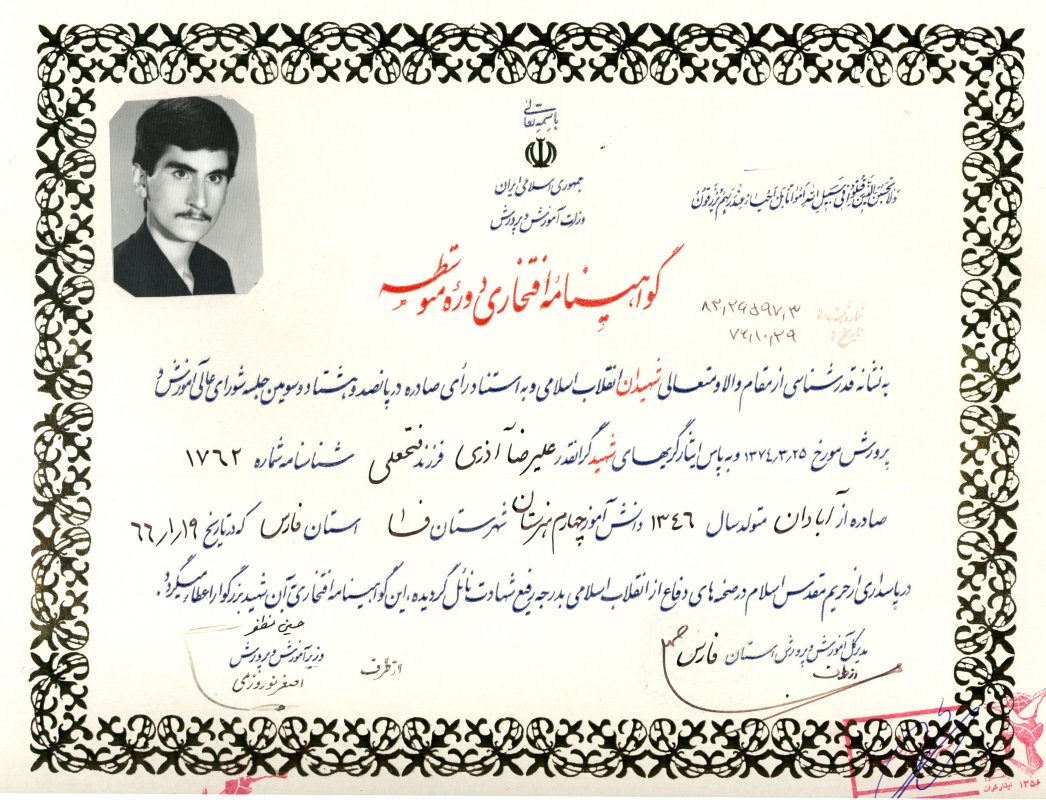 باسمه تعالی
جمهوری اسلامی ایران
وزارت آموزش و پرورش
ولا تحسبن الذین قتلوا فی سبیل الله امواتا بل احیاء عند ربهم یرزقون
گواهینامهٔ افتخاری دورهٔ متوسطه
شماره ثبت: ۸۲٫۲۶۵۹۷٫۳
تاریخ: ۷۶٫۱۰٫۲۹
به نشانه قدرشناسی از مقام والا و متعالی شهیدان انقلاب اسلامی و به استناد رأی صادره در پانصد و هشتاد و سومین جلسه شورای عالی آموزش و
پرورش مورخ ۱۳۷۴٫۳٫۲۵ و به پاس ایثارگریهای شهید گرانقدر علیرضا آذری فرزند فتحعلی شناسنامه شماره ۱۷۶۲
صادره از آبادان متولد سال ۱۳۴۶ دانش آموز چهارم هنرستان شهرستان فسا استان فارس که در تاریخ ۶۶٫۱٫۱۹
در پاسداری از حریم مقدس اسلام در صحنه های دفاع از انقلاب اسلامی بدرجه رفیع شهادت نائل گردیده، این گواهینامه افتخاری آن شهید بزرگوار اعطاء میگردد.
مدیر کل آموزش و پرورش استان فارس
از طرف
حسین مظفر
وزیر آموزش و پرورش
از طرف
اصغر نوروزی
۱۳۵۸ ایثارگران